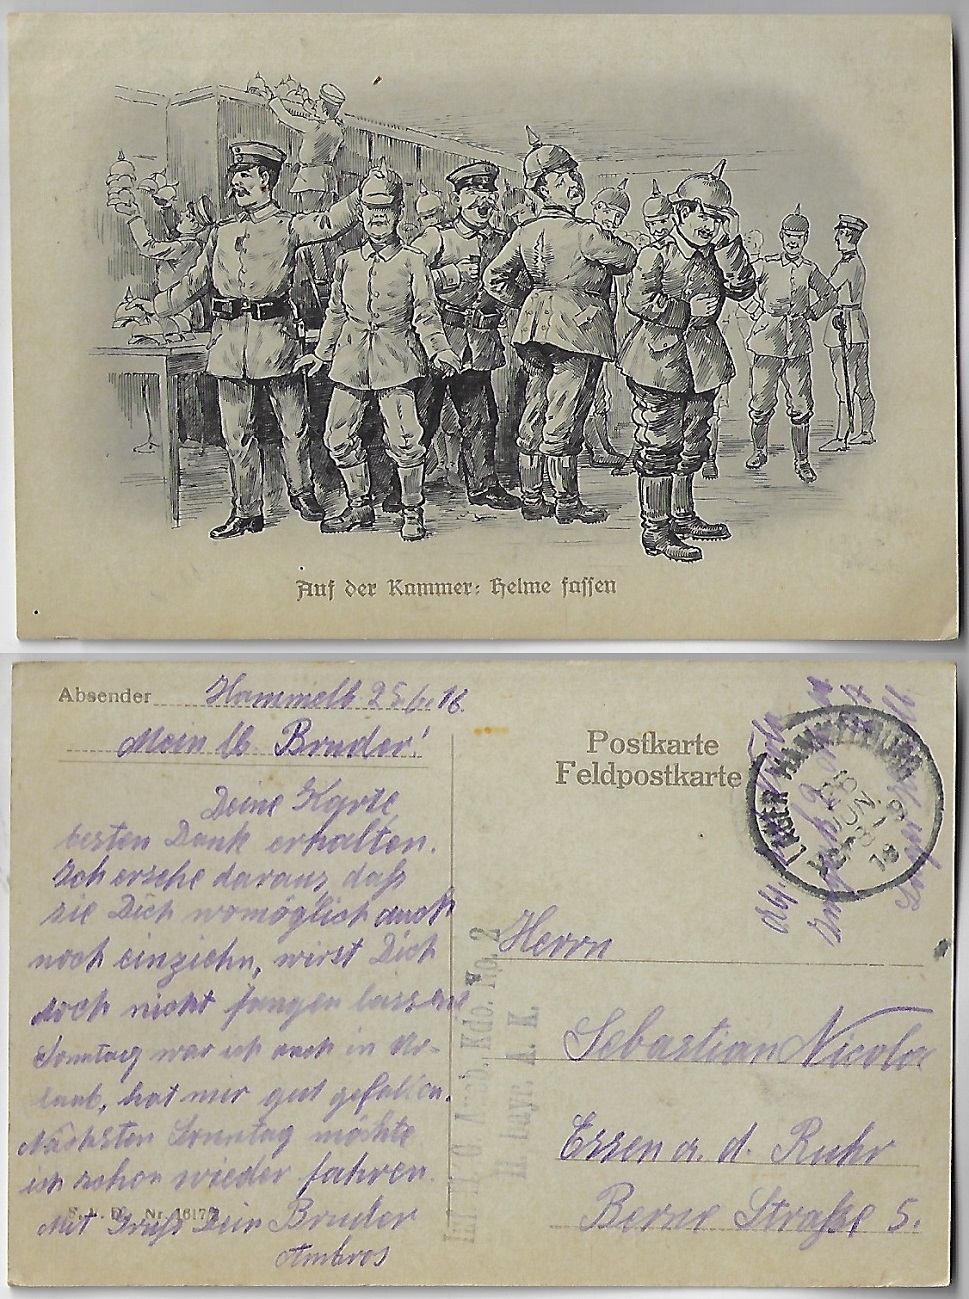 Auf der Kammer: Helme fassen
Absender Hammelb. 25.6.16.
Mein lb. Bruder!
Deine Karte
besten Dank erhalten.
Ich ersehe daraus, daß
sie Dich womöglich auch
noch einziehn, wirst Dich
doch nicht fangen lassen
Sonntag war ich auch in Ur-
laub, hat mir gut gefallen.
Nächsten Sonntag möchte
ich schon wieder fahren.
Mit Gruß Dein Bruder
Ambros
Nr. 1617
Postkarte
Feldpostkarte
LAGER HAMMELBURG
JUN.
Kdo. No. 2
II. bayr. A. K.
Herrn
Sebastian Nicola
Essen a. d. Ruhr
Berne Straße 5.